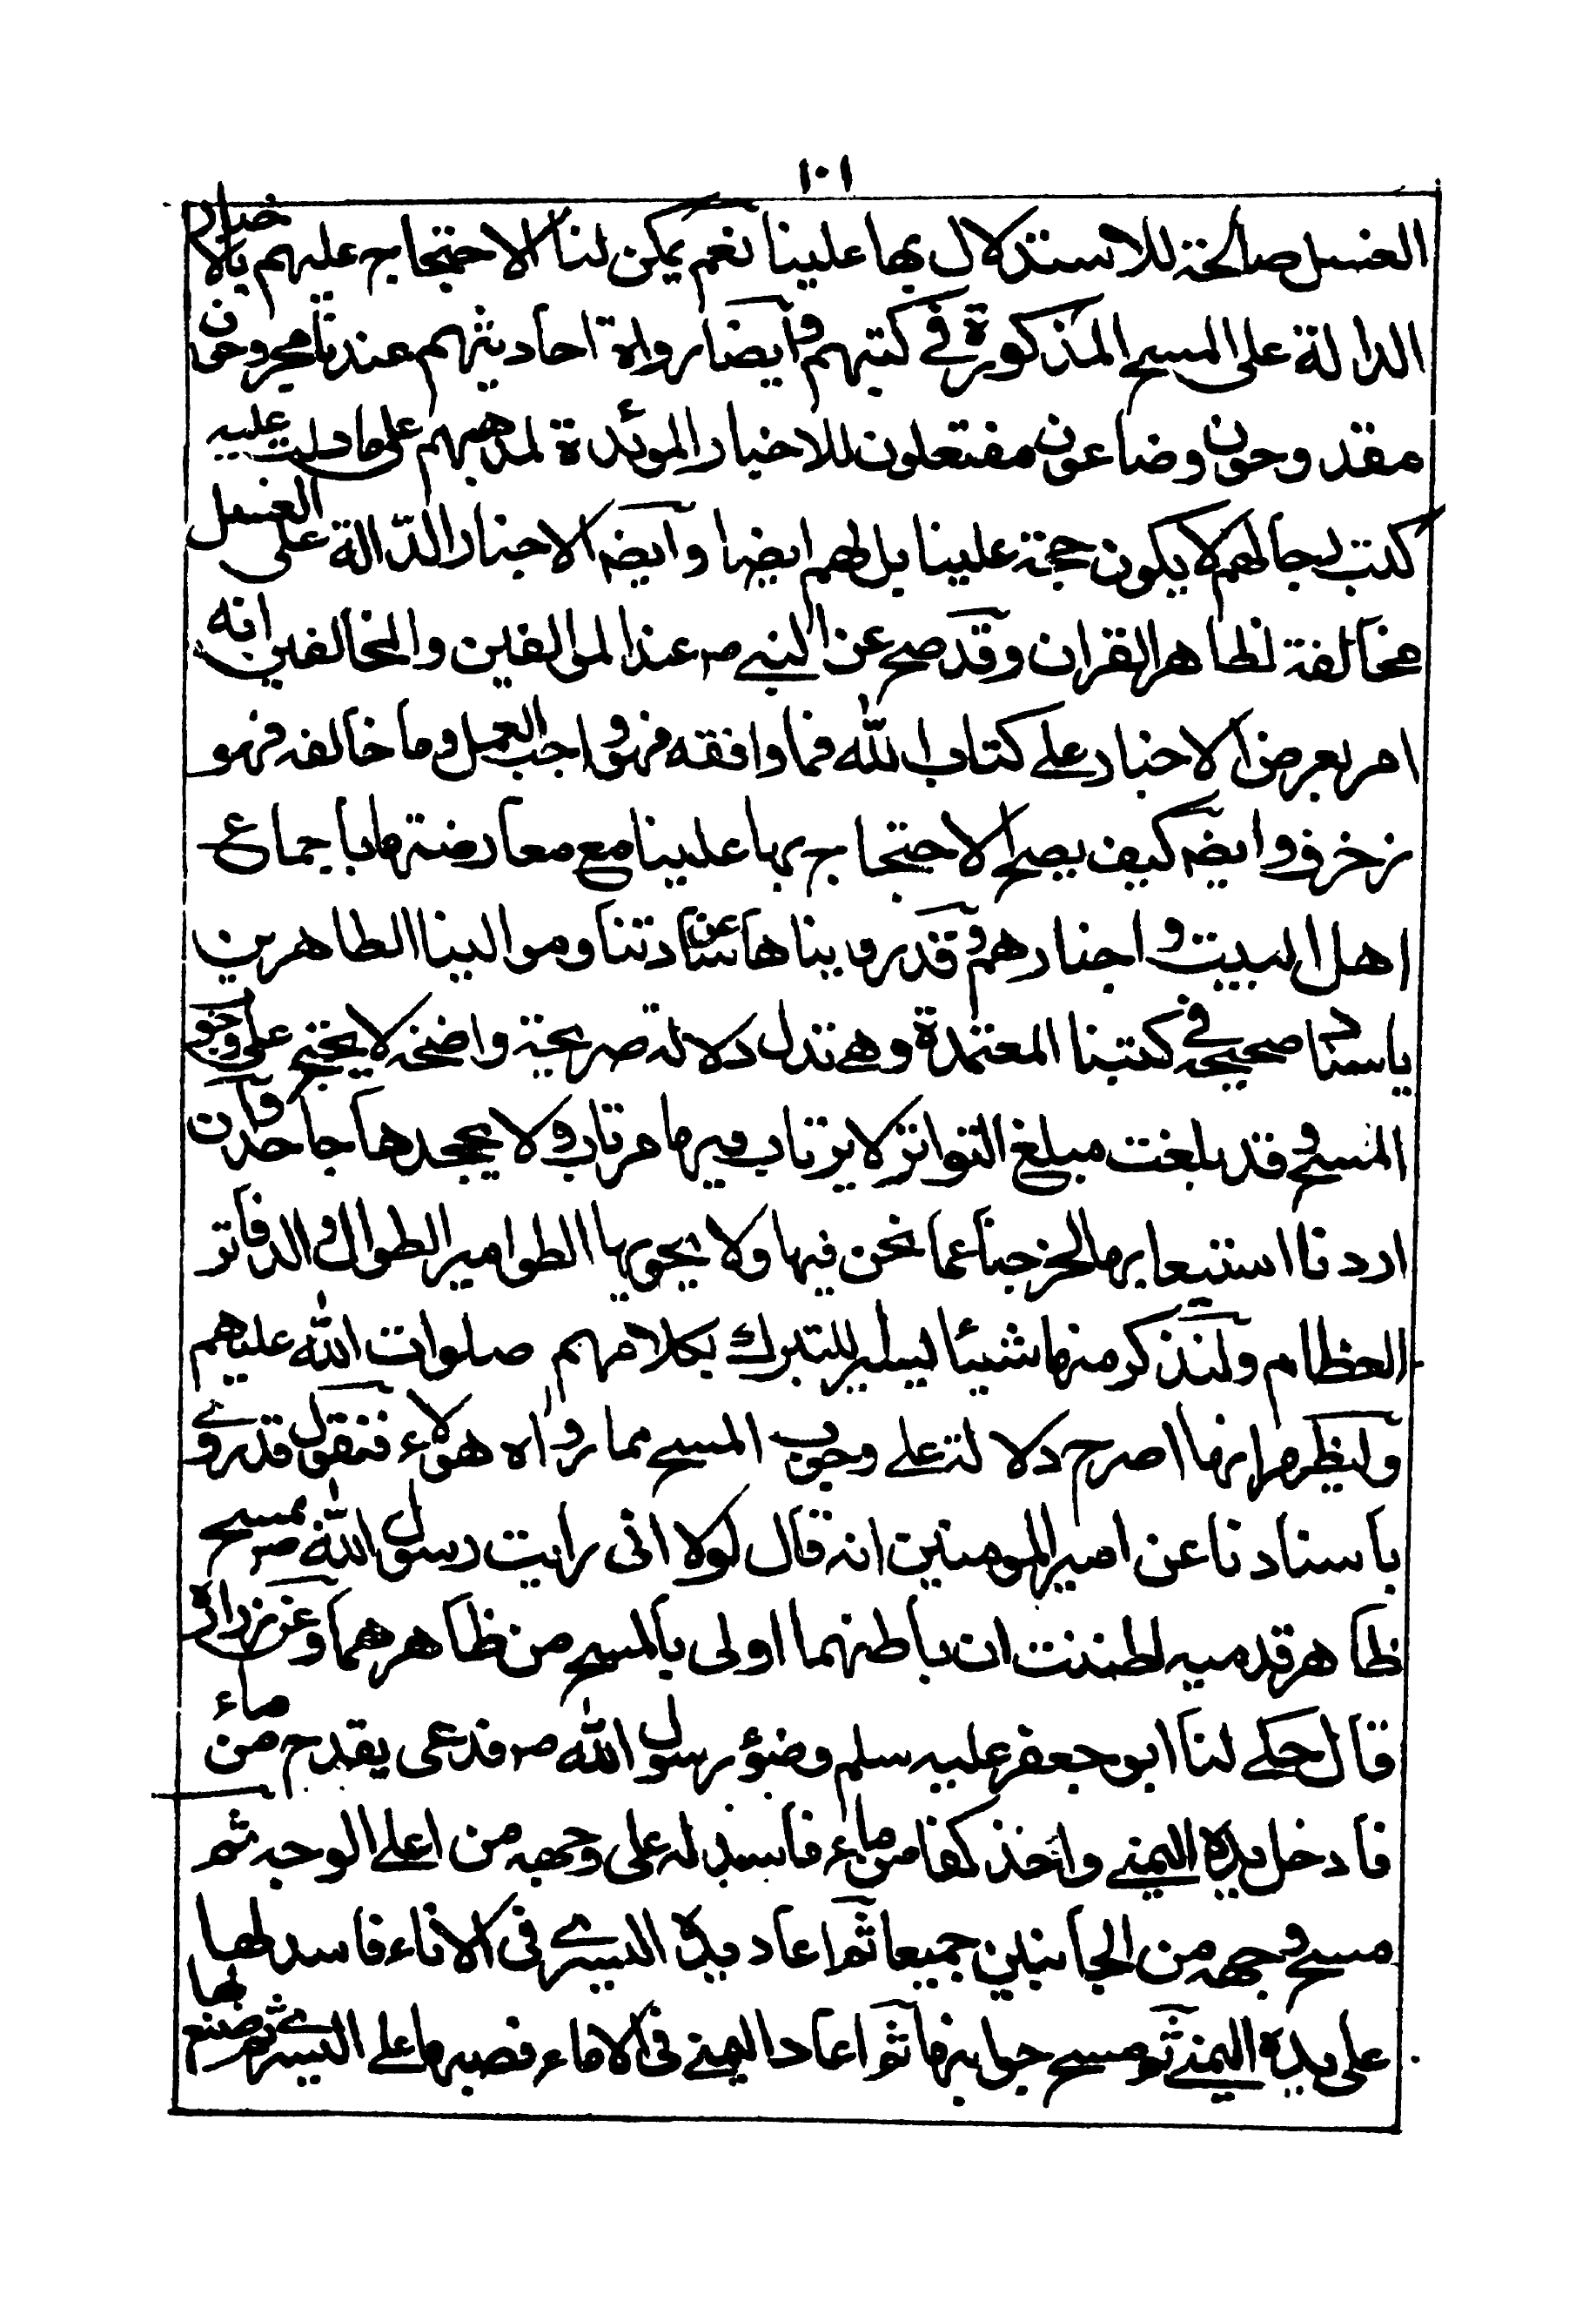 ١٠١
الغسل صالحة للاستدلال بها علينا نعم يمكن لنا الاحتجاج عليهم بالاخبار
الدالة على المسح المذكورة في كتبهم وايضا رواة احاديثهم عندنا مجروحون
مقدوحون وضاعون مفتعلون للاخبار الموئدة لمذهبهم على ما دلت عليه
كتب رجالهم لا يكون حجة علينا بل لهم ايضا وايضه الاخبار الدّالة على الغسل
مخالفة لظاهر القران وقد صح عن النبي صه عند الموالفين والمخالفين انه
امر بعرض الاخبار على كتاب الله فما وافقه فهو واجب العمل وما خالفه فهو
زخرف وايضه كيف يصح الاحتجاج بها علينا مع معارضتها باجماع
اهل البيت واخبارهم وقد روبناها عن ساداتنا وموالينا الطاهرين
باسناد صحيحه في كتبنا المعتمدة وهي تدل دلالة صريحة واضحة لا يختم على وجو
المسح وقد بلغت مبلغ التواتر لا يرتاب فيها مرتاب ولا يجحدها جاحد وان
اردنا استيعابها لخرجنا عما نحن فيها ولا يحويها الطوامير الطوال والدفاتر
العظام ولنذكر منها شيئا يسير للتبرك بكلامهم صلوات الله عليهم
وليظهر انها اصرح دلالة على وجوب المسح مما رواه هولاء فنقول قد روى
باسنادنا عن امير المومنين انه قال لولا انى رايت رسول الله صه يمسح
ظاهر قدميه لظننت ان باطنهما اولى بالمسح من ظاهرهما وعن زرارة
قال حكى لنا ابو جعفر عليه سلم وضوٴ رسول الله صه فدعى بقدح من ماء
فادخل يده اليمنى واخذ كفا من ماء فاسدله على وجهه من اعلى الوجه ثم
مسح وجهه من الجانبين جميعا ثم اعاد يده اليسرى فى الاناء فاسدلها
على يده اليمنى ثم مسح جوانبها ثم اعاد اليمنى فى الاناء فصبها على اليسرى ثم صنع لها